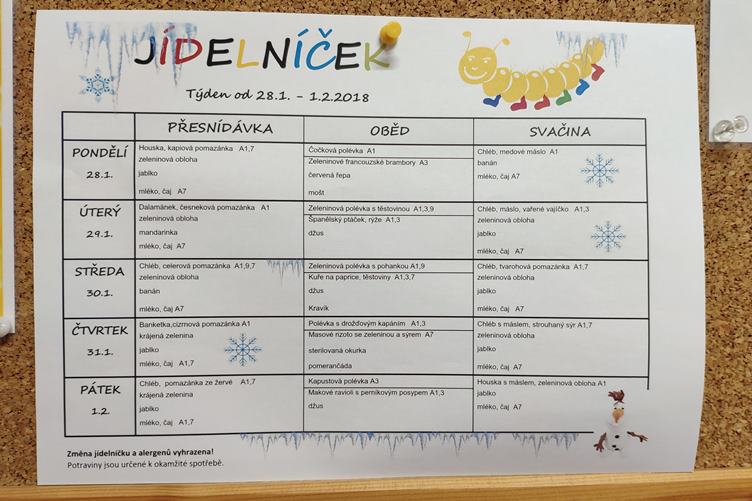 JÍDELNÍČEK
Týden od 28.1. - 1.2.2018
PŘESNÍDÁVKA
OBĚD
SVAČINA
PONDĚLÍ
28.1.
Houska, kapiová pomazánka A1,7
zeleninová obloha
jablko
mléko, čaj A7
Čočková polévka A1
Zeleninové francouzské brambory A3
červená řepa
mošt
Chléb, medové máslo A1
banán
mléko, čaj A7
ÚTERÝ
29.1.
Dalamánek, česneková pomazánka A1
zeleninová obloha
mandarinka
mléko, čaj A7
Zeleninová polévka s těstovinou A1,3,9
Španělský ptáček, rýže A1,3
džus
Chléb, máslo, vařené vajíčko A1,3
zeleninová obloha
jablko
mléko, čaj A7
STŘEDA
30.1.
Chléb, celerová pomazánka A1,9,7
zeleninová obloha
banán
mléko, čaj A7
Zeleninová polévka s pohankou A1,9
Kuře na paprice, těstoviny A1,3,7
džus
Kravík
Chléb, tvarohová pomazánka A1,7
zeleninová obloha
jablko
mléko, čaj A7
ČTVRTEK
31.1.
Banketka,cizrnová pomazánka A1
krájená zelenina
jablko
mléko, čaj A1,7
Polévka s drožďovým kapáním A1,3
Masové rizoto se zeleninou a sýrem A7
sterilovaná okurka
pomerančáda
Chléb s máslem, strouhaný sýr A1,7
zeleninová obloha
jablko
mléko, čaj A7
PÁTEK
1.2.
Chléb, pomazánka ze žervé A1,7
krájená zelenina
jablko
mléko, čaj A1,7
Kapustová polévka A3
Makové ravioli s perníkovým posypem A1,3
džus
Houska s máslem, zeleninová obloha A1
jablko
mléko, čaj A7
Změna jídelníčku a alergenů vyhrazena!
Potraviny jsou určené k okamžité spotřebě.